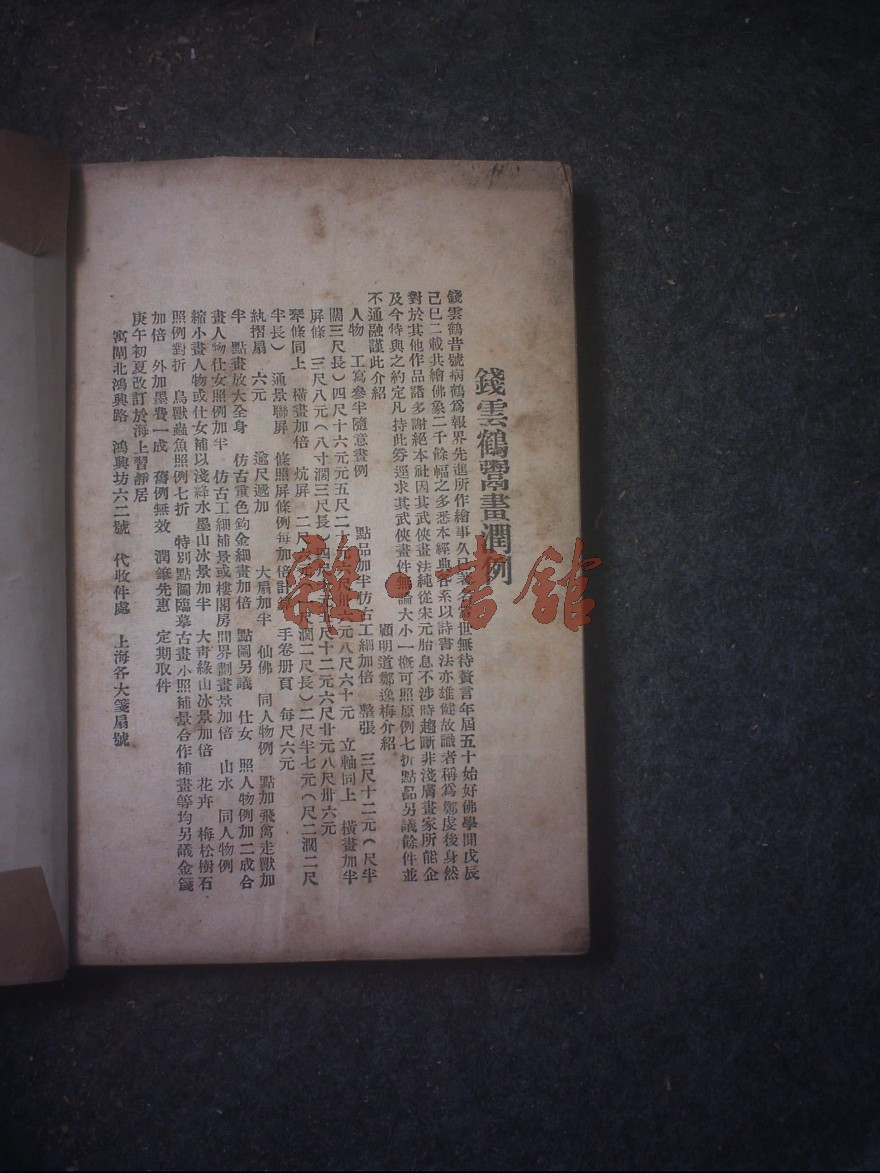 錢雲鶴鬻畫潤例
錢雲鶴昔號病鶴爲報界先進所作繪事久已著名當世無待贅言年屆五十始好佛學聞戊辰
己巳二載共繪佛象二千餘幅之多悉本經典各系以詩書法亦雄健故識者稱爲鄭虔後身然
對於其他作品諸多謝絕本社因其武俠畫法純從宋元胎息不涉時趨斷非淺膚畫家所能企
及今特與之約定凡持此劵逕求其武俠畫件無論大小一槪可照原例七折點品另議餘件並
不通融謹此介紹
顧明道鄭逸梅介紹
人物 工寫參半隨意畫例 點品加半仿古工細加倍 整張 三尺十二元(尺半
闊三尺長)四尺十六元五尺二十元六尺卅元八尺六十元 立軸同上 橫畫加半
屏條 三尺八元(八寸濶三尺長)四尺 五尺十二元六尺廿元八尺卅六元
琴條同上 橫畫加倍 炕屏 二尺 濶二尺長)二尺半七元(尺二濶二尺
半長) 通景聯屏 條照屏條例每加倍計算 手卷册頁 每尺六元
紈摺扇 六元 逾尺遞加 大扇加半 仙佛 同人物例 點加飛禽走獸加
半 點畫放大全身 仿古重色鈎金細畫加倍 點圖另議 仕女 照人物例加二成合
畫人物仕女照例加半 仿古工細補景或樓閣房間界劃畫景加倍 山水 同人物例
縮小畫人物或仕女補以淺絳水墨山水景加半 大青綠山水景加倍 花卉 梅松樹石
照例對折 鳥獸蟲魚照例七折 特別點圖臨摹古畫小照補景合作補畫等均另議金箋
加倍 外加墨費一成 舊例無效 潤筆先惠 定期取件
庚午初夏改訂於海上習靜居
寓閘北鴻興路 鴻興坊六二號 代收件處 上海各大箋扇號
雜·書館